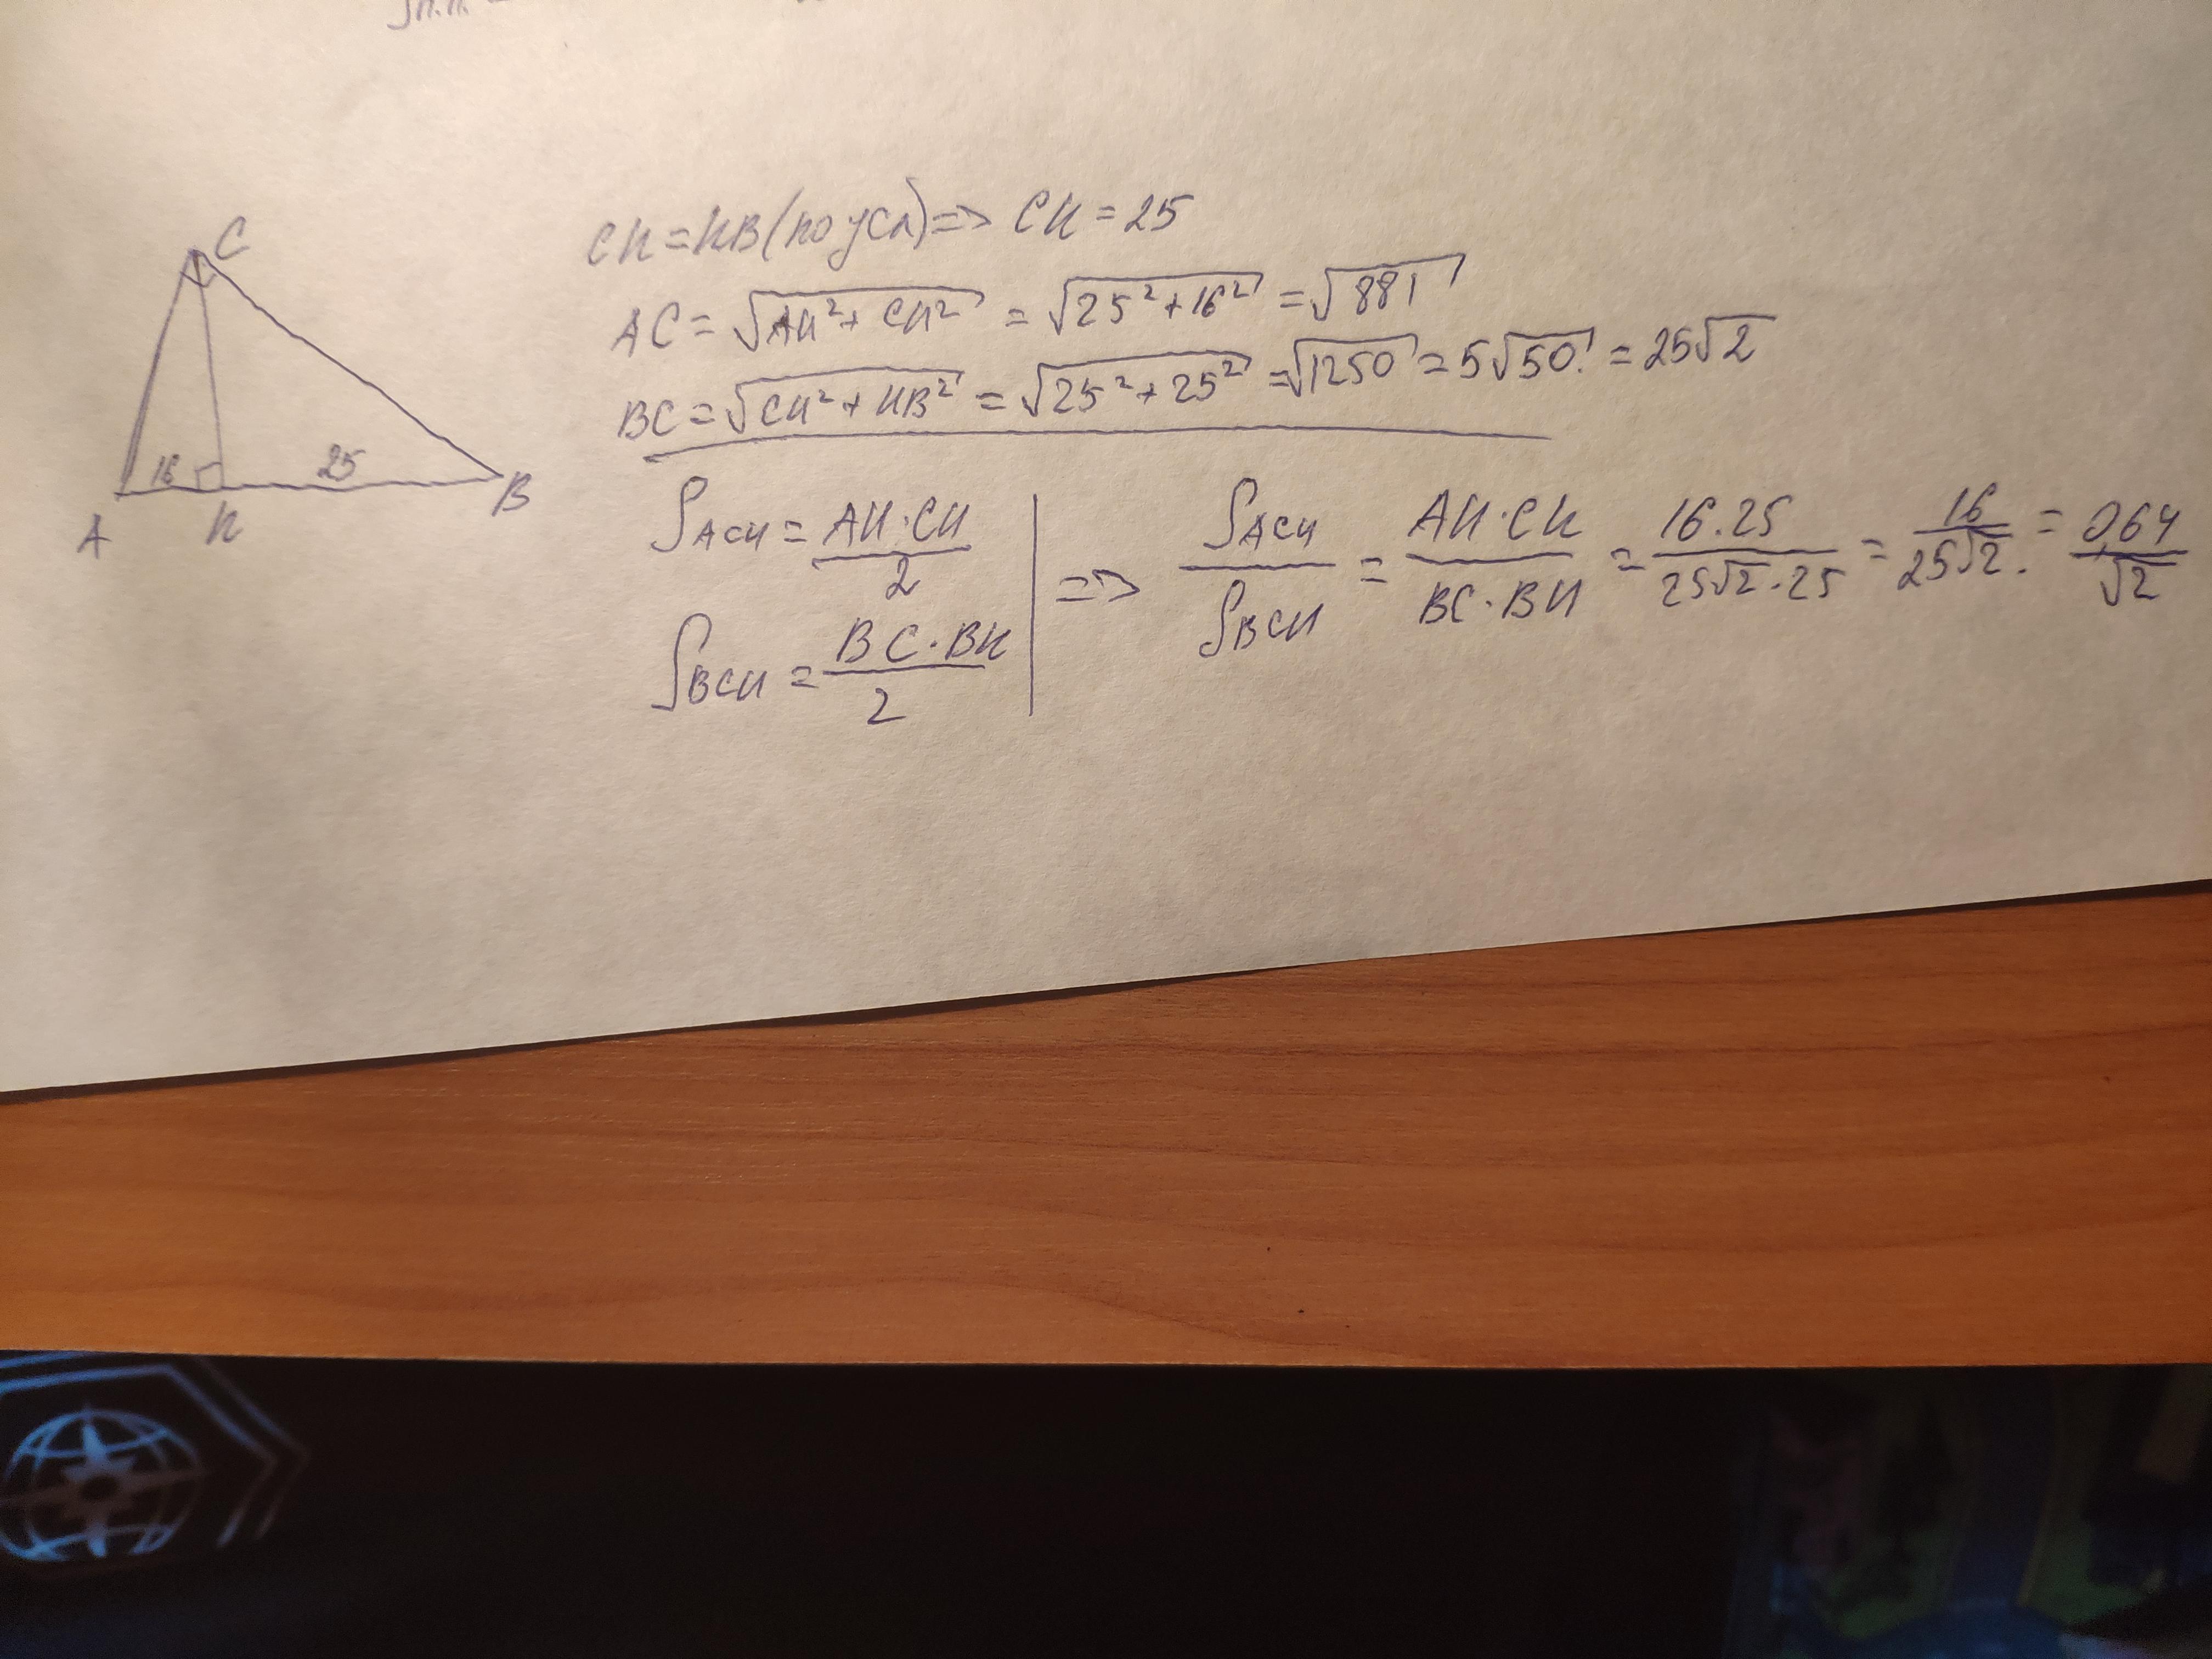 C
16
25
A
H
B
CH = HB (по усл) => CH = 25
AC = √(AH² + CH²) = √(25² + 16²) = √881
BC = √(CH² + HB²) = √(25² + 25²) = √1250 = 5√50 = 25√2
S_ACH = AH·CH / 2
S_BCH = BC·BH / 2
=> S_ACH / S_BCH = AH·CH / BC·BH = 16·25 / 25√2·25 = 16 / 25√2 = 0,64 / √2